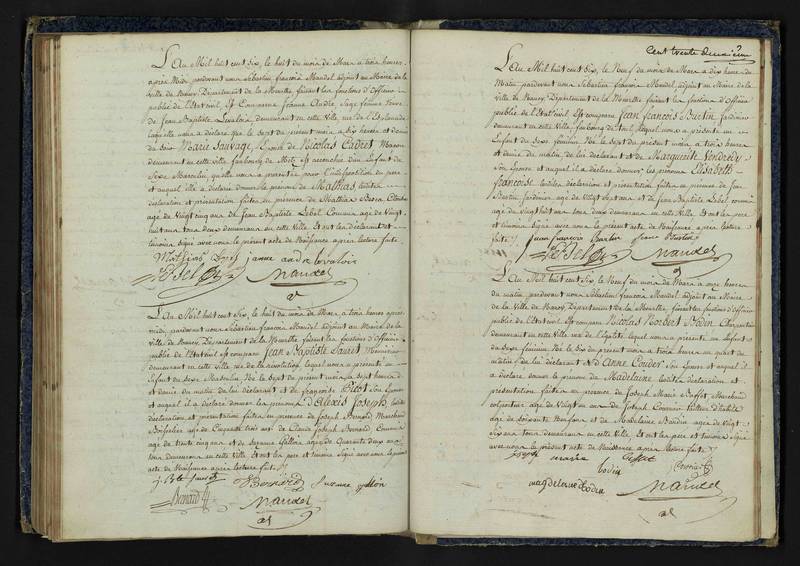 L'An Mil huit cent Six, le huit du mois de Mars a trois heures
après Midi pardevant nous Sébastien françois Mandel adjoint au Maire de la
Ville de Nancy Département de la Meurthe faisant les fonctions d'Officier
public de l'Etat civil, Est Comparue Jeanne André Sage femme
de Jean Baptiste Levaloir demeurant en cette Ville rue de l'Esplanade
laquelle nous a déclaré que le sept du présent mois a dix heures et demie
du Soir Marie Sauvage, Epouse de Nicolas Cadret Maçon
demeurant en cette Ville faubourg de Metz Est accouchée d'un Enfant du
Sexe Masculin, qu'elle nous a présenté
et auquel elle a déclaré donner le prénom de Mathias lesdites
déclaration et présentation faites en présence de Mathias
agé de Vingt cinq ans et de Jean Baptiste Lebel Commis agé de Vingt
huit ans tous deux demeurant en cette Ville. Et ont les déclarant et
témoins Signé avec nous le présent acte de Naissance après lecture faite
Mathias janne andre levaloir
Lebel Mandel
L'An Mil huit cent Six, le huit du mois de Mars a trois heures après
midi, pardevant nous Sébastien françois Mandel adjoint au Maire de la
Ville de Nancy, Département de la Meurthe faisant les fonctions d'Officier
public de l'Etat civil Est comparu Jean Baptiste Lauret
demeurant en cette Ville rue de la révolution lequel nous a présenté un
Enfant du Sexe Masculin Né le sept du présent mois a sept heures
et demie du matin de lui déclarant et de françoise Pitot Son Epouse
et auquel il a déclaré donner les prénoms d'Alexis Joseph lesdites
déclaration et présentation faites en présence de Joseph Bernard Marchand
Boisselier agé de Cinquante trois ans de Claude Joseph Bernard Commis
agé de trente cinq ans et de Suzanne Gillon agée de Quarante deux ans
tous demeurant en cette Ville, Et ont les père et témoins Signé avec nous le présent
acte de Naissance après lecture faite
j. Bte Lauret J Bernard Suzanne gillon
Bernard Mandel
Cent trente deuxième
L'An Mil huit cent Six, le Neuf du mois de Mars a dix heures du
Matin pardevant nous Sébastien françois Mandel adjoint au Maire de la
Ville de Nancy, Département de la Meurthe, faisant les fonctions d'Officier
public de l'Etat civil Est comparu Jean François Burtin Jardinier
demeurant en cette Ville, faubourg de lequel nous a présenté un
Enfant du Sexe féminin Né le Sept du présent mois, a trois heures
et demie du matin de lui déclarant et de Marguerite Vendredy
Son Epouse et auquel il a déclaré donner les prénoms Elisabeth
françoise lesdites déclaration et présentation faites en présence de
Burtin Jardinier agé de Vingt sept ans et de Jean Baptiste Lebel commis
agé de Vingt huit ans tous deux demeurant en cette Ville. Et ont les père
et témoins Signé avec nous le présent acte de Naissance après lecture
faite. Jean francois Burtin Burtin
Lebel Mandel
L'An Mil huit cent Six, le Neuf du mois de Mars a onze heures
du matin pardevant nous Sébastien françois Mandel adjoint au Maire
de la Ville de Nancy, Département de la Meurthe, faisant les fonctions d'officier
public de l'Etat civil Est comparu Nicolas Norbert Bodin Charpentier
demeurant en cette Ville rue de l'égalité lequel nous a présenté un Enfant
du Sexe féminin Né le dix du présent mois a trois heures un quart du
matin de lui déclarant et d'Anne Couder Son Epouse et auquel il
a déclaré donner le prénom de Madelaine lesdites déclaration et
présentation faites en présence de Joseph Marie Baffet, Marchand
colporteur agé de Vingt un ans de Joseph Cannois tailleur d'habits
agé de Soixante ans et de Madelaine Baudin agée de Vingt
Six ans tous demeurant en cette Ville, Et ont les père et témoins Signé
avec nous le présent acte de Naissance après lecture faite.
joseph marie Baffet
bodin
magdelaine bodin Mandel